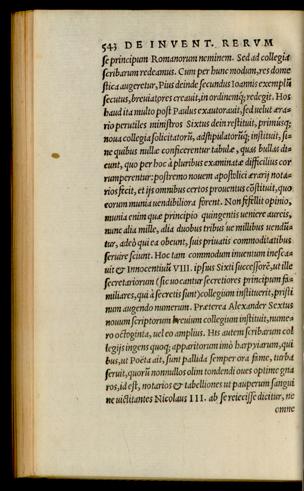 543 DE INVENT. RERVM
se principum Romanorum neminem. Sed ad collegia
scribarum redeamus. Cum per hunc modum, res dome
stica augeretur, Pius deinde secundus Ioannis exemplũ
secutus, breuiatores creauit, in ordinemq; redegit. Hos
haud ita multo post Paulus exautorauit, sed uelut æra-
rio perutiles ministros Sixtus dein restituit, primúsq;
noua collegia solicitatorũ, adstipulatorũq; instituit, si-
ne quibus nullæ conficerentur tabulæ, quas bullas di-
cunt, quo per hoc à pluribus examinatæ difficilius cor
rumperentur: postremo nouem apostolici ærarij nota-
rios fecit, et ijs omnibus certos prouentus cõstituit, quo
eorum munia uendibiliora forent. Non fefellit opinio,
munia enim quæ principio quingentis ueniere aureis,
nunc alia mille, alia duobus tribus ue millibus uendũ-
tur, adeò qui ea obeunt, suis priuatis commoditatibus
seruire sciunt. Hoc tam commodum inuentum inesca-
uit & Innocentiũ VIII. ipsus Sixti successorẽ, ut ille
secretariorum (sic uocantur secretiores principum fa-
miliares, qui à secretis sunt) collegium instituerit, pristi
num augendo numerum. Præterea Alexander Sextus
nouum scriptorum breuium collegium instituit, nume-
ro octoginta, uel eo amplius. His autem scribarum col
legijs ingens quoq; apparitorum imò harpyiarum, qui
bus, ut Poëta ait, sunt pallida semper ora fame, turba
seruit, quorũ nonnullos olim tondendi oues optime gna
ros, id est, notarios & tabelliones ut pauperum sangui
ne uictitantes Nicolaus III. ab se reiecisse dicitur, ne
omne